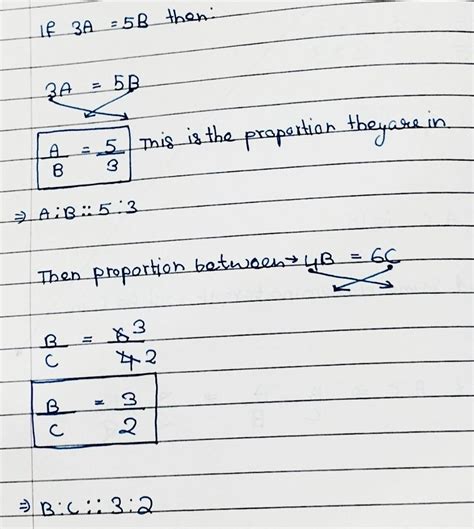 If 3A = 5B then:
3A = 5B
A/B = 5/3 This is the proportion they are in
⇒ A:B :: 5:3
Then proportion between → 4B = 6C
B/C = 6̶ 3/4̶ 2
B/C = 3/2
⇒ B:C :: 3:2